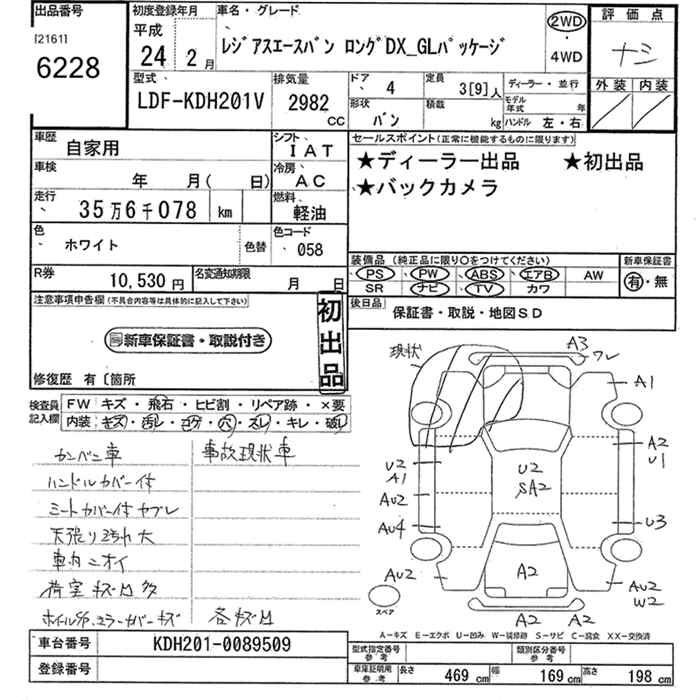 出品番号
[2161]
6228
初度登録年月
平成
24年 2月
車名・グレード
レジアスエースバン ロングDX_GLパッケージ
2WD
・
4WD
評価点
ナシ
外装 内装
型式
LDF-KDH201V
排気量
2982
CC
ドア 4
定員 3[9]人
ディーラー・並行
形状 バン
積載 kg
モデル年式 年
ハンドル 左・右
車歴
自家用
シフト
IAT
車検
年 月( 日)
冷房
AC
走行
35万6千078 km
燃料
軽油
色
ホワイト
色替
色コード
058
R券
10,530円
名変通知期限
月 日
セールスポイント(正常に機能するものに限ります)
★ディーラー出品 ★初出品
★バックカメラ
装備品 (純正品に限り○をつけてください)
新車保証書
PS PW ABS エアB AW
SR ナビ TV カワ
有・無
後日品
保証書・取説・地図SD
注意事項申告欄(不具合内容等は具体的に記入して下さい)
新車保証書・取説付き
初出品
修復歴 有〔箇所
検査員記入欄
FW キズ・飛石・ヒビ割・リペア跡・×要
内装:キズ・汚レ・コゲ・穴・スレ・キレ・破レ
カンバン車 事故現状車
ハンドルカバー付
シートカバー付ヤブレ
天張り汚れ大
車内ニオイ
荷室キズ凹多
各キズ凹
現状
A3
ワレ
A1
A2
U1
U2
A1
AU2
AU4
AU2
U2
SA2
U3
AU2
W2
A2
A2
A2
スペア
A-キズ E-エクボ U-凹み W-補修跡 S-サビ C-腐食 XX-交換済
車台番号
KDH201-0089509
登録番号
型式指定番号
参考
類別区分番号
参考
車庫証明用
参考
長さ 469cm 幅 169cm 高さ 198cm